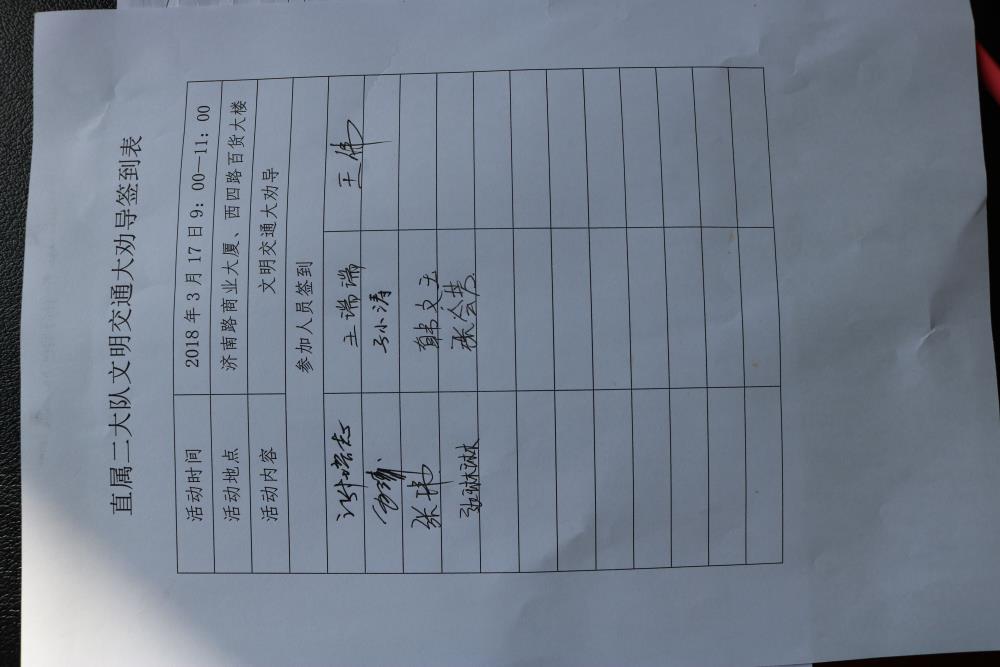 直属二大队文明交通大劝导签到表
活动时间 2018年3月17日9：00—11：00
活动地点 济南路商业大厦、西四路百货大楼
活动内容 文明交通大劝导
参加人员签到
王端端 王伟
孙小涛
张伟 韩文玉
张会英